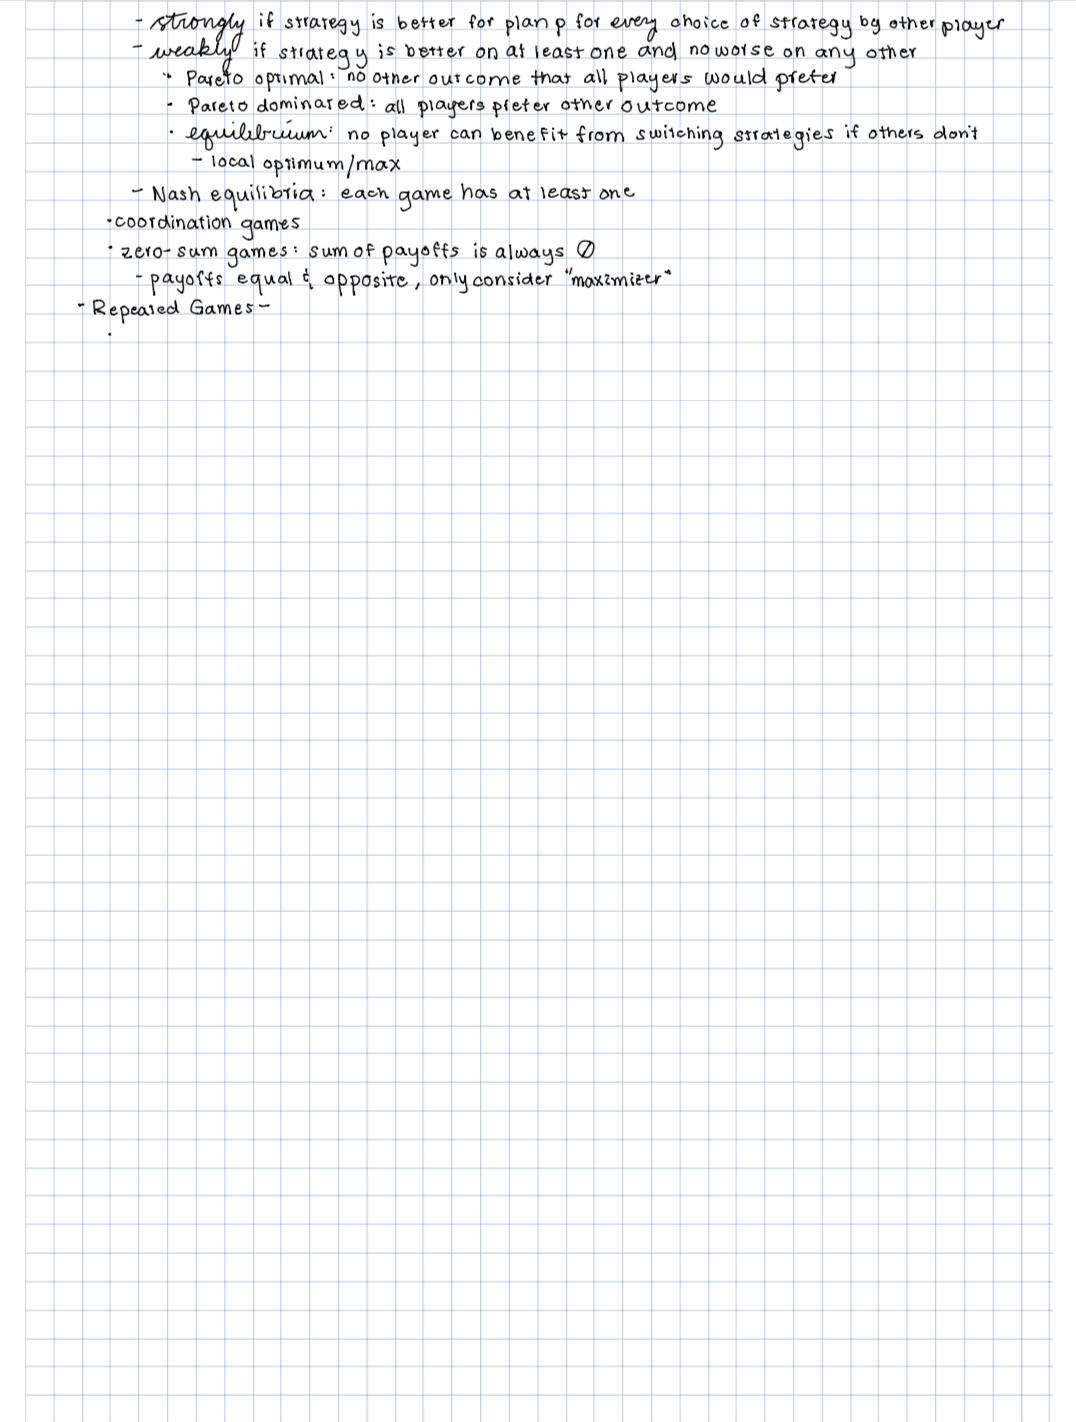 - strongly if strategy is better for plan p for every choice of strategy by other player
- weakly if strategy is better on at least one and no worse on any other
· Pareto optimal: no other outcome that all players would prefer
· Pareto dominated: all players prefer other outcome
· equilibrium: no player can benefit from switching strategies if others don't
- local optimum/max
- Nash equilibria: each game has at least one
· coordination games
· zero-sum games: sum of payoffs is always 0
- payoffs equal & opposite, only consider "maximizer"
- Repeated Games -
·